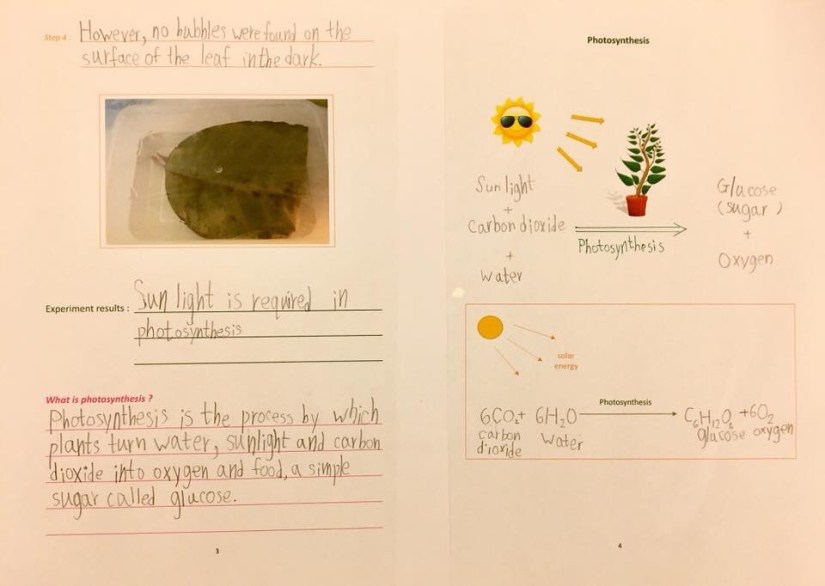 Step 4 : However, no bubbles were found on the
surface of the leaf in the dark.
Experiment results : Sun light is required in
photosynthesis
What is photosynthesis ?
Photosynthesis is the process by which
plants turn water, sunlight and carbon
dioxide into oxygen and food, a simple
sugar called glucose.
3
Photosynthesis
Sun light
+
Carbon dioxide
+
water
Photosynthesis
Glucose
(sugar)
+
Oxygen
solar
energy
Photosynthesis
6CO₂+ 6H₂O C₆H₁₂O₆ +6O₂
carbon water glucose oxygen
dioxide
4